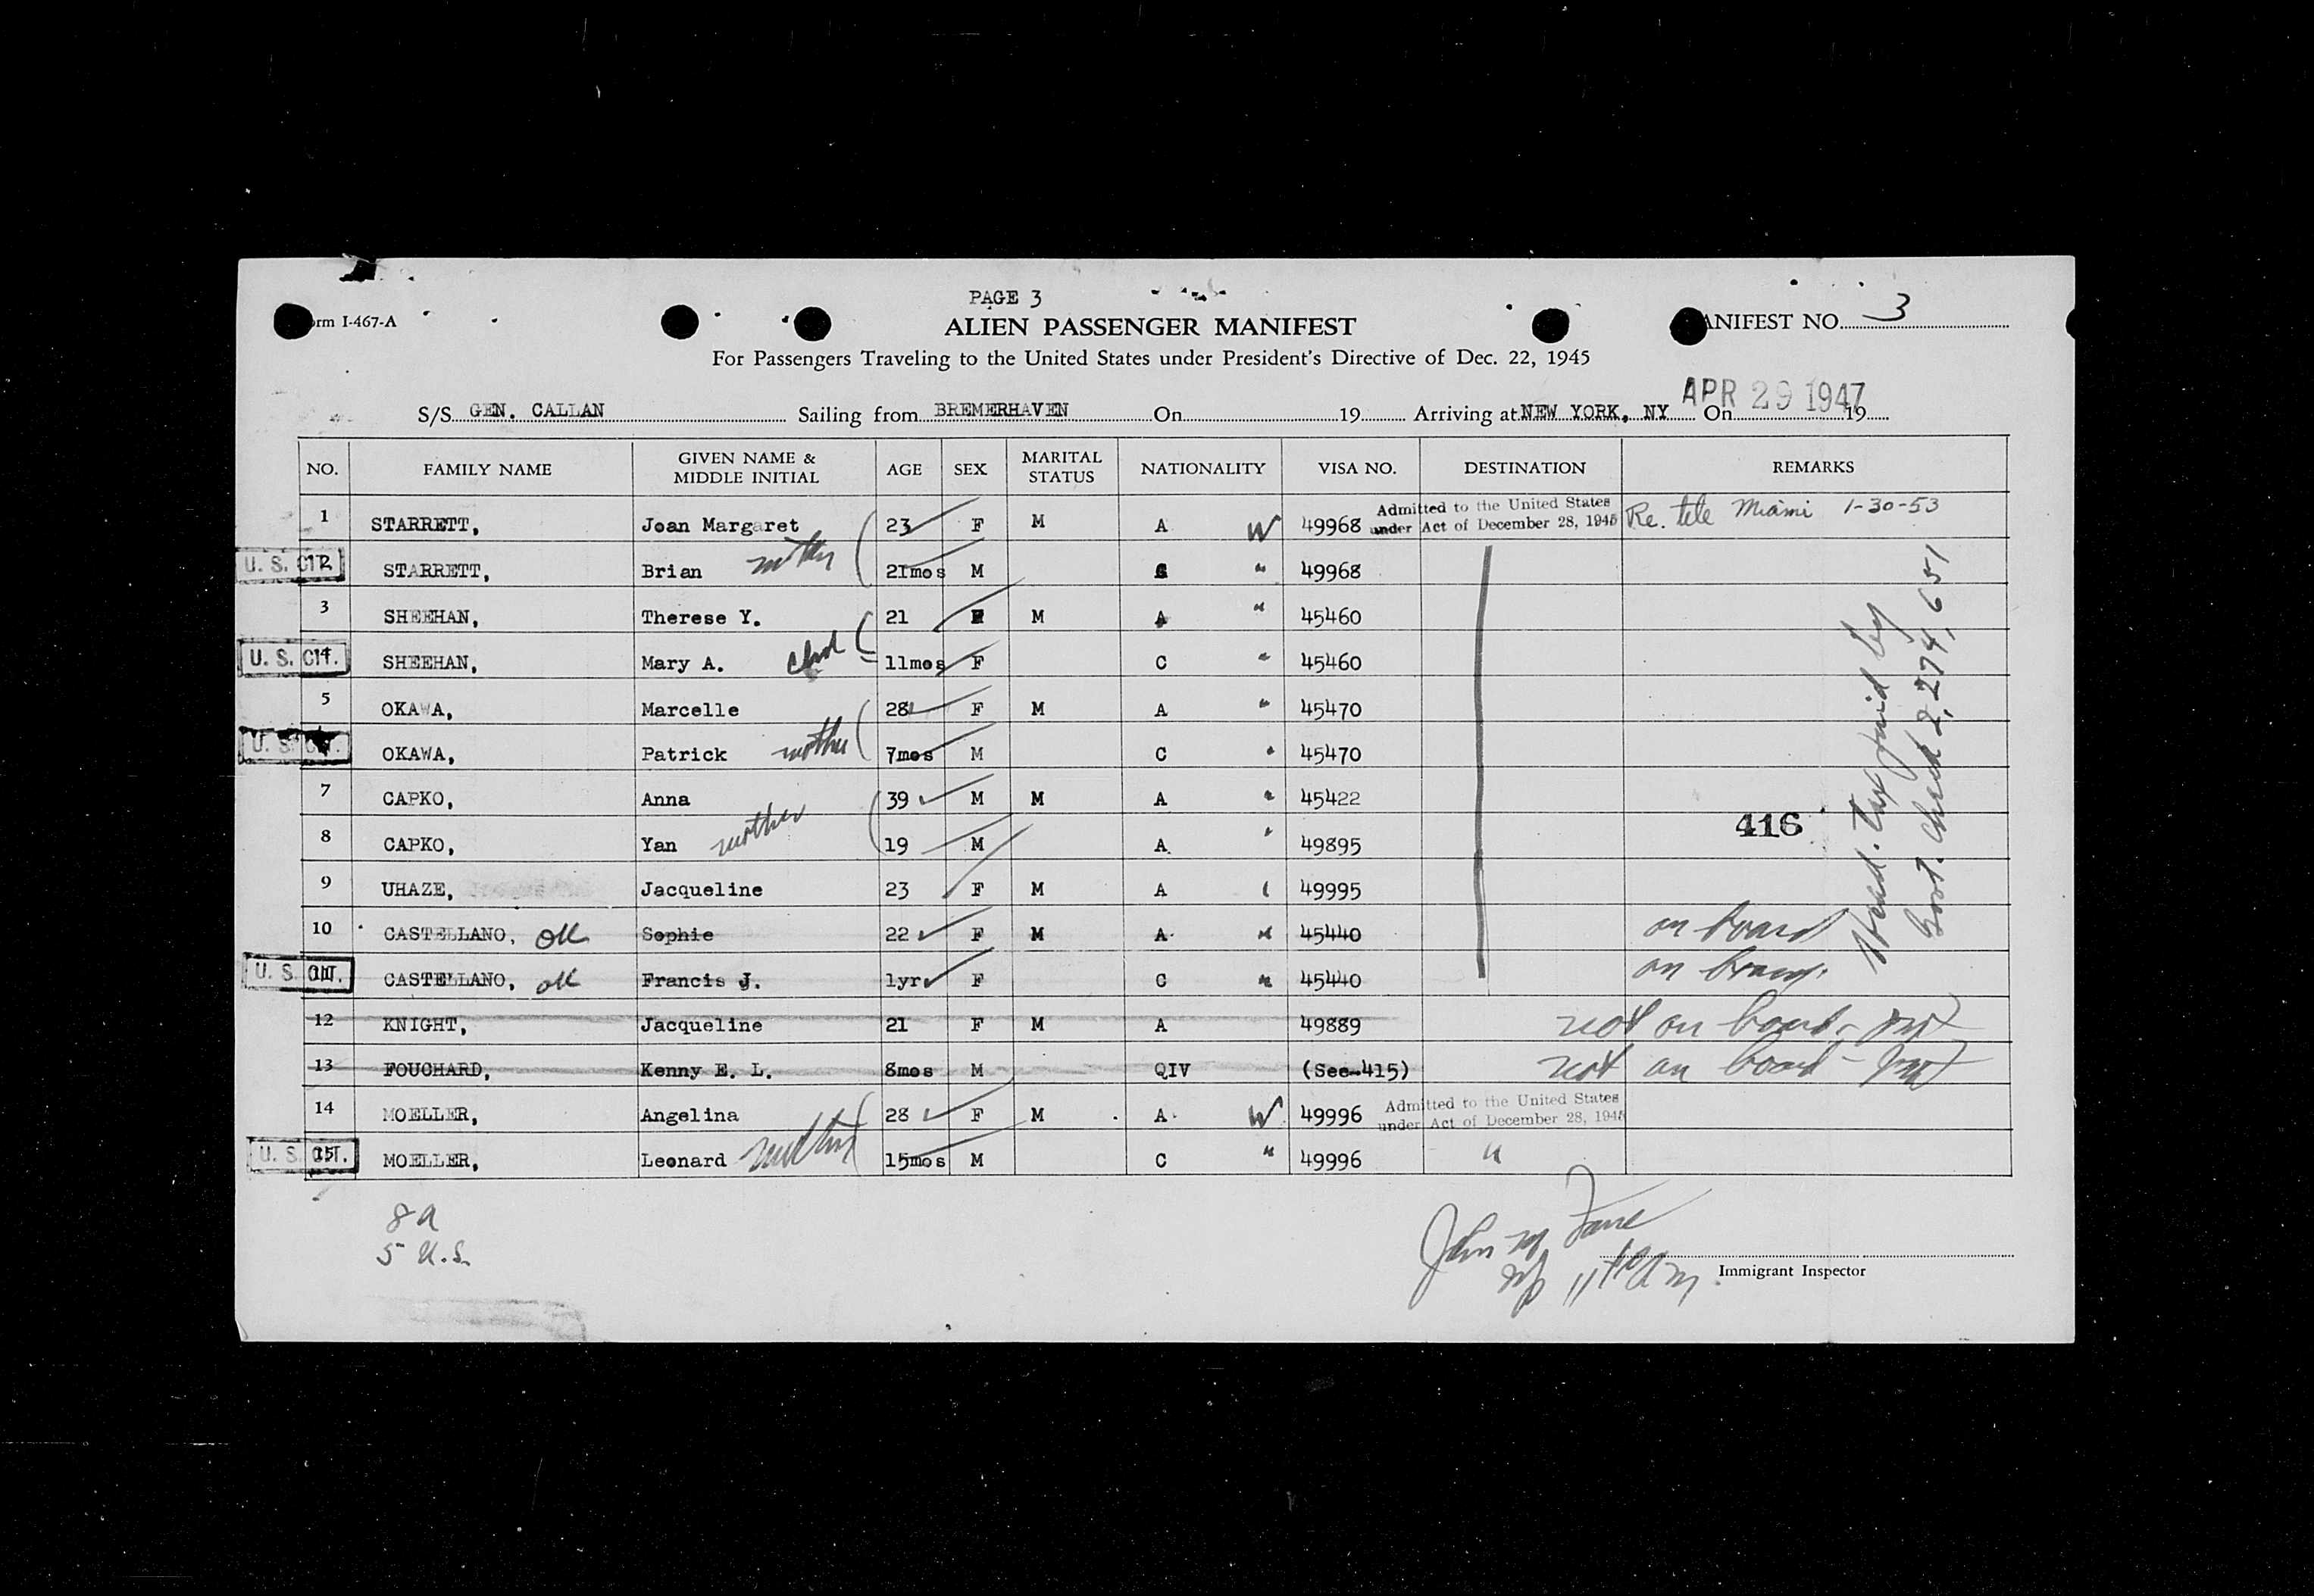 PAGE 3
orm I-467-A
ALIEN PASSENGER MANIFEST
ANIFEST NO. 3
For Passengers Traveling to the United States under President's Directive of Dec. 22, 1945
APR 29 1947
S/S GEN. CALLAN Sailing from BREMERHAVEN On 19 Arriving at NEW YORK, NY On 19
NO. FAMILY NAME GIVEN NAME & MIDDLE INITIAL AGE SEX MARITAL STATUS NATIONALITY VISA NO. DESTINATION REMARKS
1 STARRETT, Joan Margaret 23 F M A W 49968 Admitted to the United States under Act of December 28, 1945 Re. tele Miami 1-30-53
U. S. CIT. 2 STARRETT, Brian mother 21mos M " 49968
3 SHEEHAN, Therese Y. 21 F M A " 45460
U. S. CIT. 4 SHEEHAN, Mary A. child 11mos F C " 45460
5 OKAWA, Marcelle 28 F M A " 45470
U. S. OKAWA, Patrick mother 7mos M C " 45470
7 CAPKO, Anna 39 M M A " 45422
8 CAPKO, Yan mother 19 M A " 49895
416
9 UHAZE, Jacqueline 23 F M A 49995
10 CASTELLANO, OK Sophie 22 F M A " 45440 on board
U. S. CIT. 11 CASTELLANO, OK Francis J. 1yr F C " 45440 on board
12 KNIGHT, Jacqueline 21 F M A 49889 not on board -
13 FOUCHARD, Kenny E. L. 8mos M QIV (See 415) not on board -
14 MOELLER, Angelina 28 F M A W 49996 Admitted to the United States under Act of December 28, 1945
U. S. CIT. 15 MOELLER, Leonard mother 15mos M C " 49996 "
Head. tax paid by
Govt. check 2,274,651
8 A
5 U.S.
John M
Immigrant Inspector